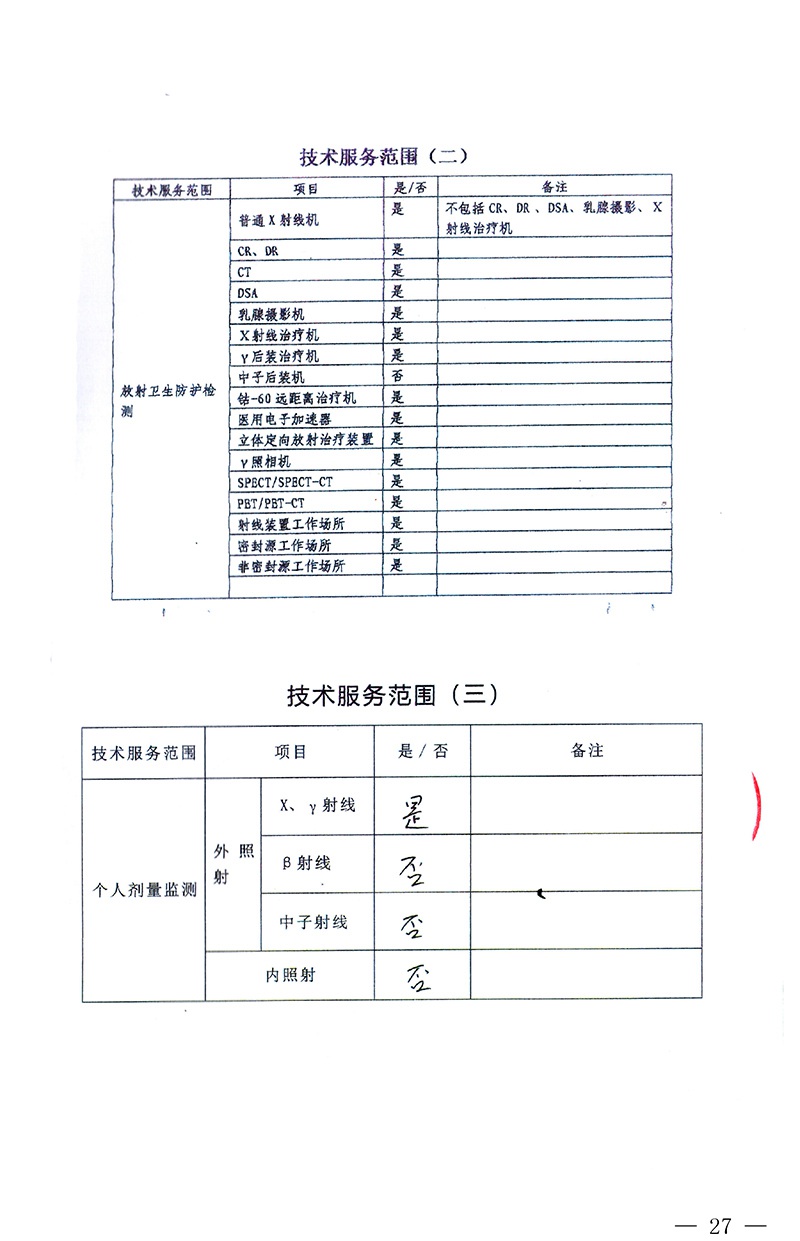 技术服务范围（二）
技术服务范围 项目 是/否 备注
放射卫生防护检测
普通X射线机 是 不包括 CR、DR 、DSA、乳腺摄影、X
射线治疗机
CR、DR 是
CT 是
DSA 是
乳腺摄影机 是
X射线治疗机 是
γ后装治疗机 是
中子后装机 否
钴-60远距离治疗机 是
医用电子加速器 是
立体定向放射治疗装置 是
γ照相机 是
SPECT/SPECT-CT 是
PET/PET-CT 是
射线装置工作场所 是
密封源工作场所 是
非密封源工作场所 是
技术服务范围（三）
技术服务范围 项目 是 / 否 备注
个人剂量监测
外照射
X、γ射线 是
β射线 否
中子射线 否
内照射 否
— 27 —